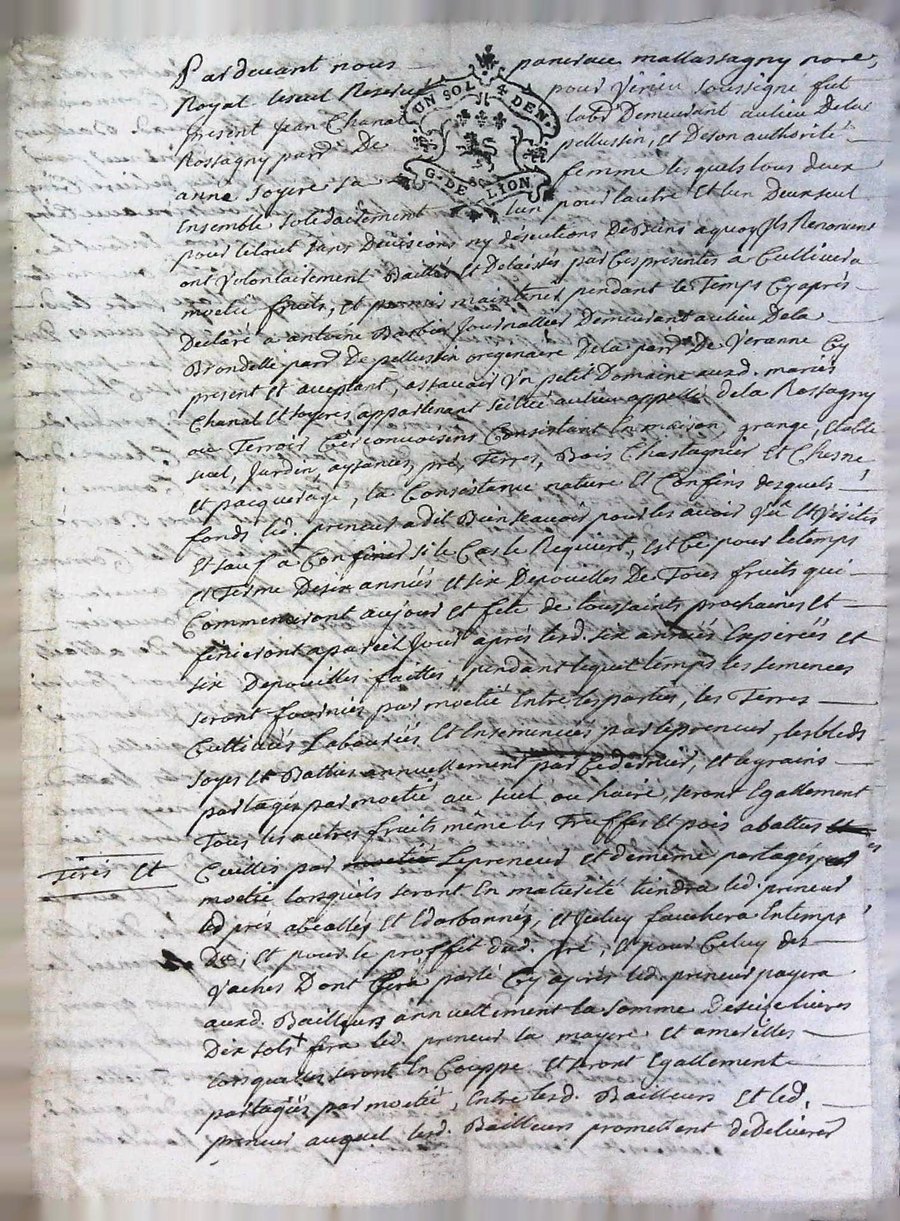 Pardevant nous pancrace mallassagny nore
Royal et seul Reservé pour Virieu soussigné fut
present Jean Chanal labr Demeurant au lieu Dela
Rossagny parr De pellussin, et De son authorité
anne Soyere sa femme lesquels tous deux
Ensemble solidairement lun pour lautre Et lun Deux seul
pour letout sans Divisions ny discutions De Biens a quoy Ils Renoncent
ont Volontairement Baillés Et Delaissés par Ces presentes a Cultiver a
moetié fruits, Et promis maintenir pendant le Temps Cy aprés
Declaré a antoine Barbier Journallier Demeurant au lieu Dela
Brondelle parr De pellussin originaire dela parr De Veranne Cy
present Et acceptant, assavoir Un petit Domaine auxd. mariés
Chanal Et soyeres appartenant scittué au lieu appellé dela Rossagny
ou Terroir Circonvoisins Consistant En maison, grange, Etable
suel, Jardin, aysances, prés, Terres, Bois Chastagnier Et Chesne
Et pacquerage, la Consistance nature Et Confins desquels
fonds led. preneur a dit Bien scavoir pour les avoir Vus Et Visités
Et sauf a Confiner si le Cas le Requiert, Et Ce pour le temps
et Terme De six années Et six Depouilles De Tous fruits qui
Commenceront au jour Et fete de toussaints prochaines Et
finieront a pareil Jour aprés lesd. six années Expirées Et
six Depouilles faittes, pendant lequel temps les semences
seront fournies par moetié Entre les parties, les Terres
Cultivées Labourées Et Ensemencées par le preneur, les bleds
soyés Et Battus annuellement par Ce dernier, et le grains
partagés par moetié au suel ou haire, seront Egallement
Tous les autres fruits même les Truffes Et pois abattus et
Tirés Et
Cuillis par moetié Le preneur et de même partagés par
moetié lorsquils seront En maturité tiendra led. preneur
led prés abeallés Et Edarbonnés, Et Iceluy fauchera En temps
De; Et pour le proffet dud. pré, Et pour Celuy des
Vaches Dont sera parlé Cy aprés led. preneur payera
auxd. Bailleurs annuellement la somme De seize livres
Dix sols fera led. preneur la mayere Et amerelles
lorsquelles seront En Couppe Et seront Egallement
partagées par moetié, Entre lesd. Bailleurs Et led.
preneur auquel lesd. Bailleurs promettent de Delivrer
UN SOL 4 DEN.
G. DE LION